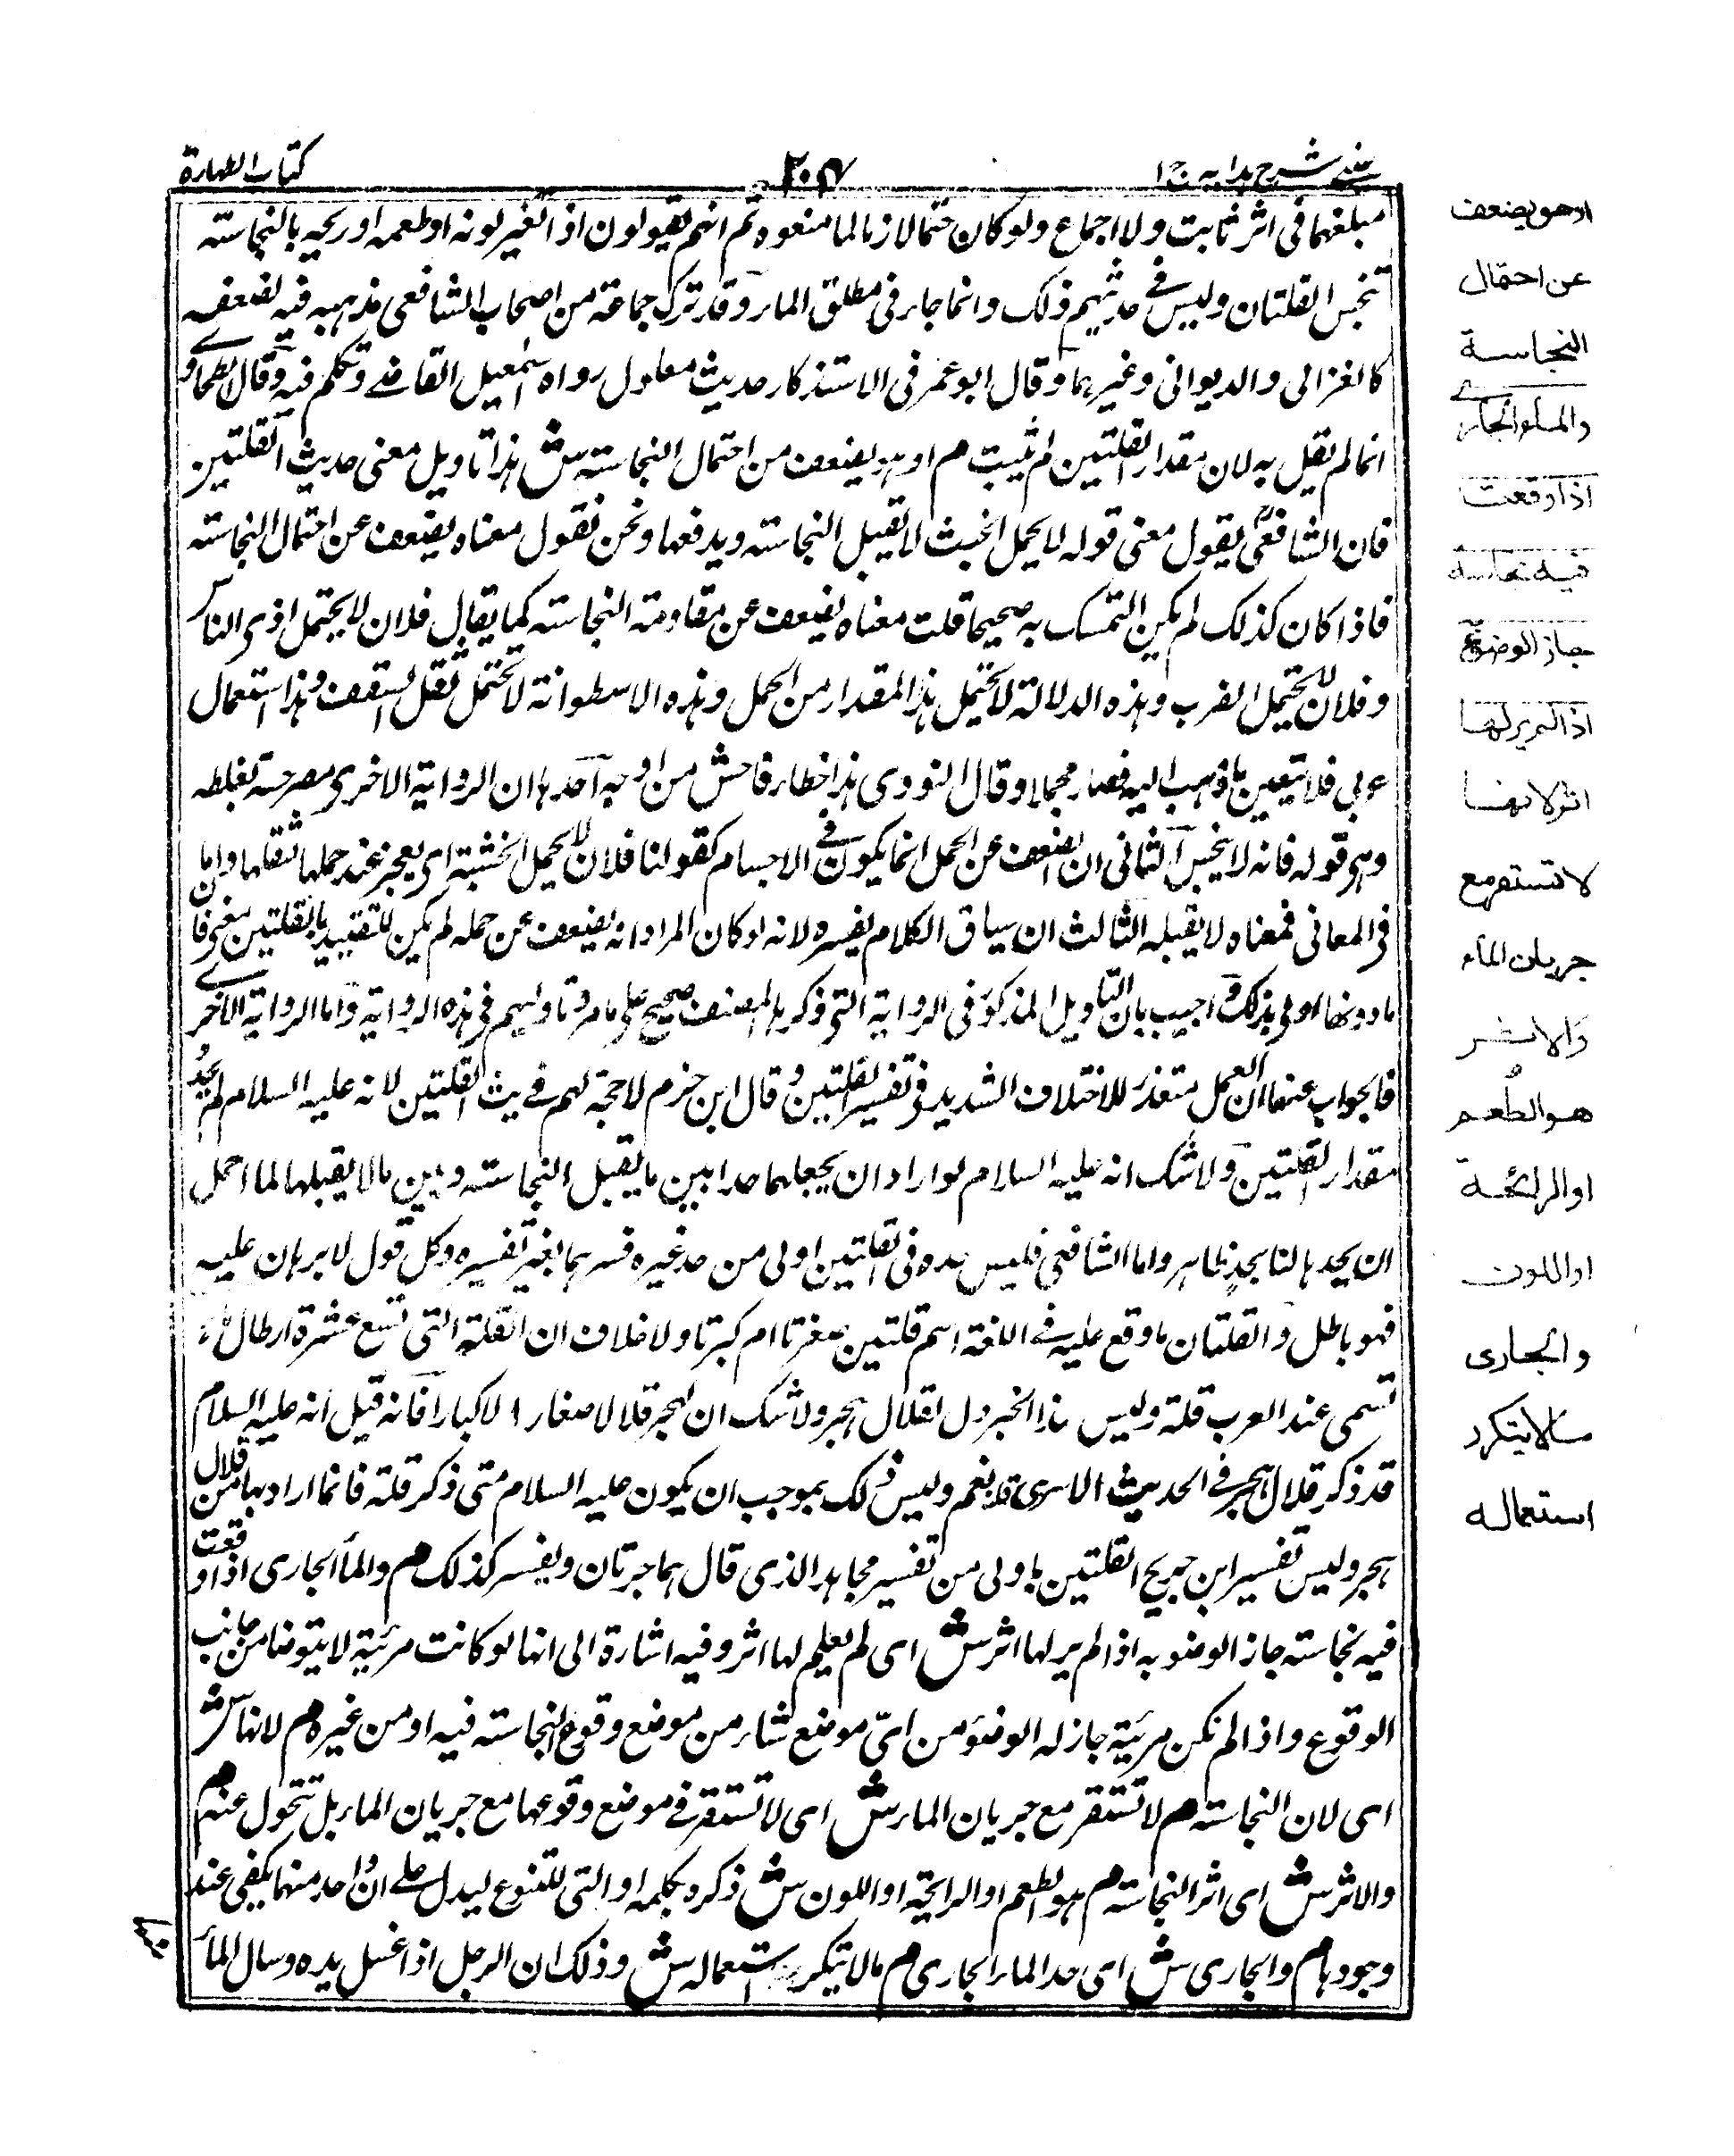 عینی شرح ہدایہ ج ۱
۲۰۴
کتاب الطہارة
مبلغهما فی اثر ثابت ولا اجماع ولو کان حتما لازما لما منعوہ ثم انہم یقولون اذا تغیر لونہ او طعمہ او ریحہ بالنجاستہ
تنجس القلتان ولیس فی حدیثہم ذلک وانما جاء فی مطلق الماء وقد ترک جماعة من اصحاب الشافعی مذہبہ فیہ لضعفہ
کالغزالی والدیوانی وغیرہما وقال ابو عمر فی الاستذکار حدیث معلول رواہ اسمٰعیل القاضے وتکلم فیہ وقال الطحاوے
انما لم نقل بہ لان مقدار القلتین لم یثبت م او ہو یضعف من احتمال النجاستہ ش ہذا تاویل معنی حدیث القلتین
فان الشافعی یقول معنی قولہ لا یحمل الخبث لا یقبل النجاستہ ویدفعها ونحن نقول معناہ یضعف عن احتمال النجاستہ
فاذا کان کذلک لم یکن التمسک بہ صحیحا قلت معناہ یضعف عن مقاومتہ النجاستہ کما یقال فلان لا یحتمل اذی الناس
وفلان لا یحتمل الضرب وہذہ الدلالة لا تحتمل ہذا المقدار من الحمل وہذہ الاسطوانة لا تحتمل ثقل السقف وہذا استعمال
عربی فلا یتعین ما ذہب الیہ فصار مجملا وقال النووی ہذا خطاء فاحش من اوجہ احدہا ان الروایة الاخری مصرحة بغلطہ
وہی قولہ فانہ لا ینجس الثانی ان الضعف عن الحمل انما یکون فی الاجسام کقولنا فلان لا یحمل الخشبة ای یعجز عند حملها لثقلها واما
فی المعانی فمعناہ لا یقبلہ الثالث ان سیاق الکلام یفسرہ لانہ لو کان المراد انہ یضعف عن حملہ لم یکن للتقیید بالقلتین معنی فان
ما دونها اولی بذلک واجیب بان التاویل المذکور فی الروایة التی ذکرہا المصنف صحیح علی ما مر وتاویلہم فی ہذہ الروایة واما الروایة الاخرے
فالجواب عنها ان العمل متعذر للاختلاف الشدید فی تفسیر القلتین وقال ابن حزم لا حجة لہم فے حدیث القلتین لانہ علیہ السلام لم یحد
مقدار القلتین ولا شک انہ علیہ السلام لو اراد ان یجعلهما حدا بین ما یقبل النجاستہ وبین ما لا یقبلها لما اہمل
ان یحدہا لنا بحد ظاہر واما الشافعی فلیس حدہ فی القلتین اولی من حد غیرہ فسرہما بغیر تفسیرہ وکل قول لا برہان علیہ
فہو باطل والقلتان ما وقع علیہ فے اللغة اسم قلتین صغرتا ام کبرتا ولا خلاف ان القلة التی تسع عشرة ارطال ماء
تسمی عند العرب قلة ولیس ہذا الخبر دل لقلال ہجر ولا شک ان لہجر قلالا صغارا لا کبارا فانہ قیل انہ علیہ السلام
قد ذکر قلال ہجر فے الحدیث الاسری قلنا نعم ولیس ذلک بموجب ان یکون علیہ السلام متی ذکر قلة فانما اراد بہا من قلال
ہجر ولیس تفسیر ابن جریج القلتین باولی من تفسیر مجاہد الذی قال ہما جرتان ویفسر کذلک م والماء الجاری اذا وقعت
فیہ نجاستہ جاز الوضو بہ اذا لم یر لها اثر ش ای لم یعلم لها اثر وفیہ اشارة الی انها لو کانت مرئیة لا یتوضا من جانب
الوقوع واذا لم تکن مرئیة جاز لہ الوضوء من ایّ موضع شاء من موضع وقوع النجاستہ فیہ او من غیرہ م لانها ش
ای لان النجاستہ م لا تستقر مع جریان الماء ش ای لا تستقر فے موضع وقوعها مع جریان الماء بل تتحول عنہ م
والاثر ش ای اثر النجاستہ م ہو الطعم او الرایحة او اللون ش ذکرہ بکلمہ او التی للتنوع لیدل علے ان واحد منهما یکفی عند
وجودہا م والجاری ش ای حد الماء الجاری م ما لا یتکرر استعمالہ ش وذلک ان الرجل اذا غسل یدہ وسال الماء
او هو یضعف
عن احتمال
النجاسة
والماء الجاری
اذا وقعت
فیه نجاسة
جاز الوضوء
اذا لم یر لها
اثر لانها
لا تستقر مع
جریان الماء
والاثر
هو الطعم
او الرائحة
او اللون
والجاری
ما لا یتکرر
استعماله